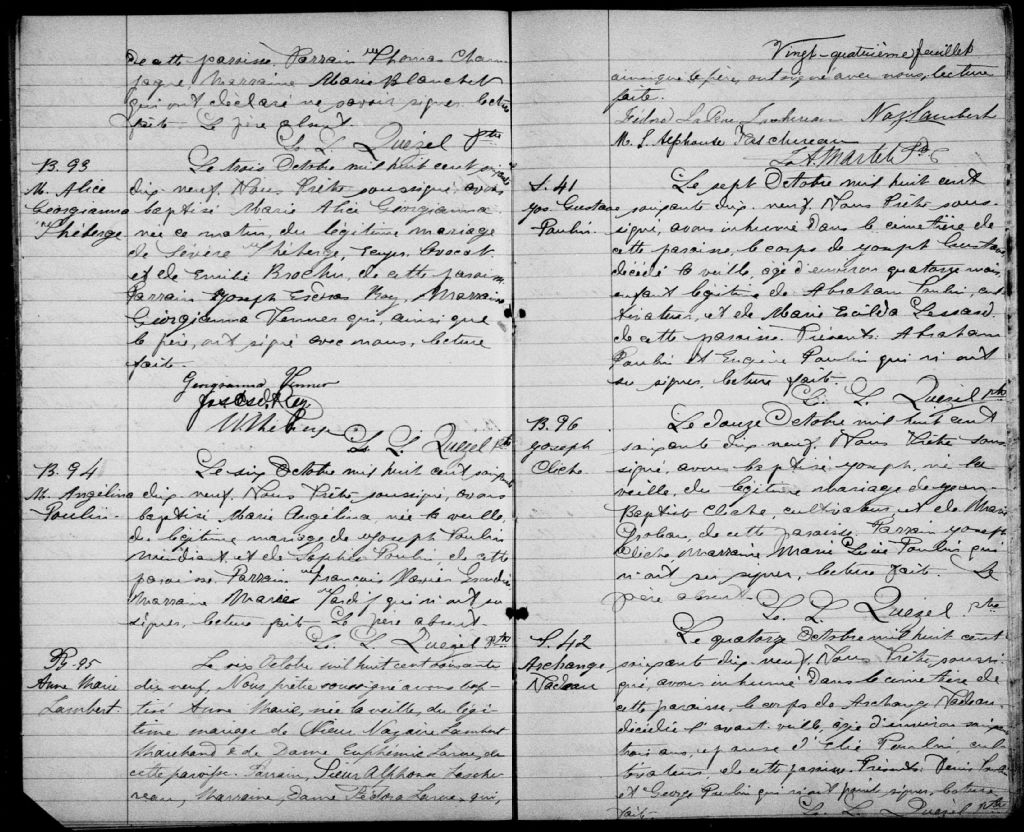 de cette paroisse. Parrain Thomas Cham
pagne, Marraine Marie Blanchet
qui ont déclaré ne savoir signer. lecture
faite. Le père absent.
L. L. Quézel Ptre
B. 93
M. Alice
Georgianna
Théberge
Le trois Octobre mil huit cent soixante
dix neuf, Nous Prêtre soussigné, avons
baptisé Marie Alice Georgianna
née ce matin, du légitime mariage
de Sévère Théberge, Avocat
et de Emilie Brochu, de cette paroisse
Parrain Joseph Esdras Roy, Marraine
Georgianna Venner qui, ainsi que
le père, ont signé avec nous, lecture
faite.
Georgianna Venner
L. L. Quézel Ptre
B. 94
M. Angélina
Poulin
Le six Octobre mil huit cent soixante
dix neuf, Nous Prêtre soussigné, avons
baptisé Marie Angélina, née la veille,
du légitime mariage de Joseph Poulin
mendiant, et de Sophie Poulin, de cette
paroisse. Parrain François Xavier
Marraine Marie Tardif qui n'ont su
signer, lecture faite. Le père absent.
L. L. Quézel Ptre
95
Anne Marie
Lambert
Le six Octobre mil huit cent soixante
dix neuf, Nous prêtre soussigné avons bap-
tisé Anne Marie, née la veille, du légi-
time mariage de Sieur Nazaire Lambert
Marchand & de Dame Euphémie Larue, de
cette paroisse. Parrain, Sieur Alphonse Tasche-
reau, Marraine, Dame Fédora Larue, qui,
Vingt-quatrième feuillet
ainsi que le père, ont signé avec nous, lecture
faite.
Fédora LaRue Taschereau Naz Lambert
M. S. Alphonse Taschereau
L. A. Martel Ptre
S. 41
Jos. Gustave
Poulin
Le sept Octobre mil huit cent
soixante dix neuf, Nous Prêtre sous-
signé, avons inhumé dans le cimetière de
cette paroisse, le corps de Joseph Gustave
décédé la veille, âgé d'environ quatorze mois,
enfant légitime de Abraham Poulin, cul
tivateur, et de Marie Lessard
de cette paroisse. Présents: Abraham
Poulin et Eugène Poulin qui n'ont
su signer, lecture faite.
L. L. Quézel ptre
B. 96
Joseph
Cliche
Le douze Octobre mil huit cent
soixante dix neuf, Nous Prêtre sous-
signé, avons baptisé Joseph, né la
veille, du légitime mariage de Jean-
Baptiste Cliche, cultivateur, et de Marie
de cette paroisse. Parrain Joseph
Cliche Marraine Marie Lucie Poulin qui
n'ont su signer, lecture faite. Le
père absent.
L. L. Quézel ptre
S. 42
Archange
Nadeau
Le quatorze Octobre mil huit cent
soixante dix neuf, Nous Prêtre soussi-
gné, avons inhumé dans le cimetière de
cette paroisse, le corps de Archange Nadeau
décédée l'avant veille, âgée d'environ soixante
trois ans, épouse d'Elie Poulin, cul
tivateur, de cette paroisse. Présents: Denis
et George Poulin qui n'ont point signer, lecture
faite. L. L. Quézel Ptre